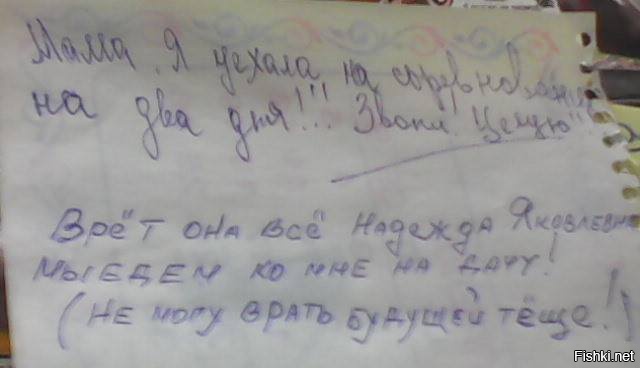 Мама, Я уехала на соревнования
на два дня!!! Звони! Целую!!
Врёт она всё Надежда Яковлевна
мы едем ко мне на дачу!
(не могу врать будущей тёще!)
Fishki.net